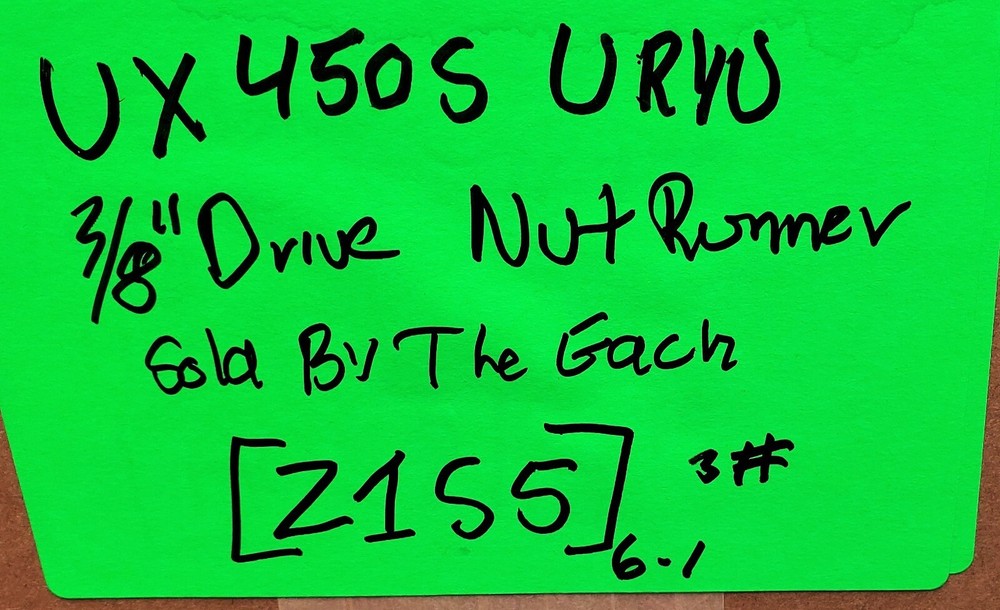 UX 450S URYU
3/8" Drive Nut Runner
Sold By The Each
[Z1S5] 3#
6.1